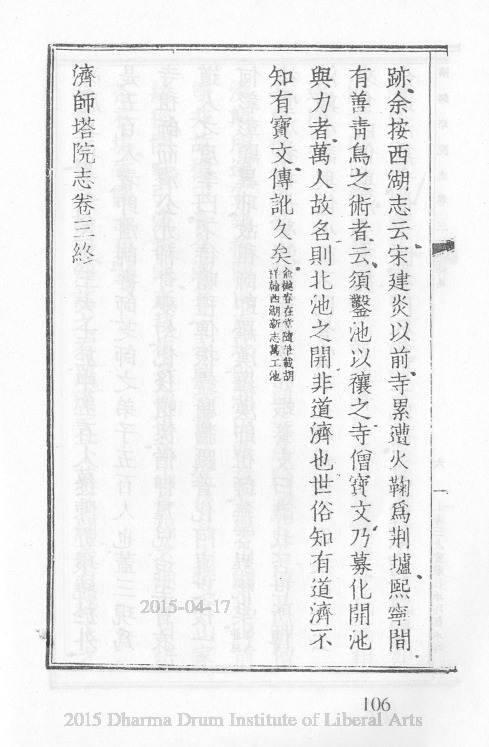 跡余按西湖志云宋建炎以前寺累遭火鞠爲荆墟熙寧間
有善靑鳥之術者云須鑿池以禳之寺僧寶文乃募化開池
與力者萬人故名則北池之開非道濟也世俗知有道濟不
知有寶文傳訛久矣俞樾春在堂隨筆載胡
祥翰西湖新志萬工池
濟師塔院志卷三終
一
2015-04-17
106
2015 Dharma Drum Institute of Liberal Arts